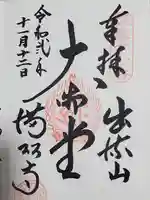 奉拝 出流山
大御堂
令和弐年
十一月十二日
満願寺